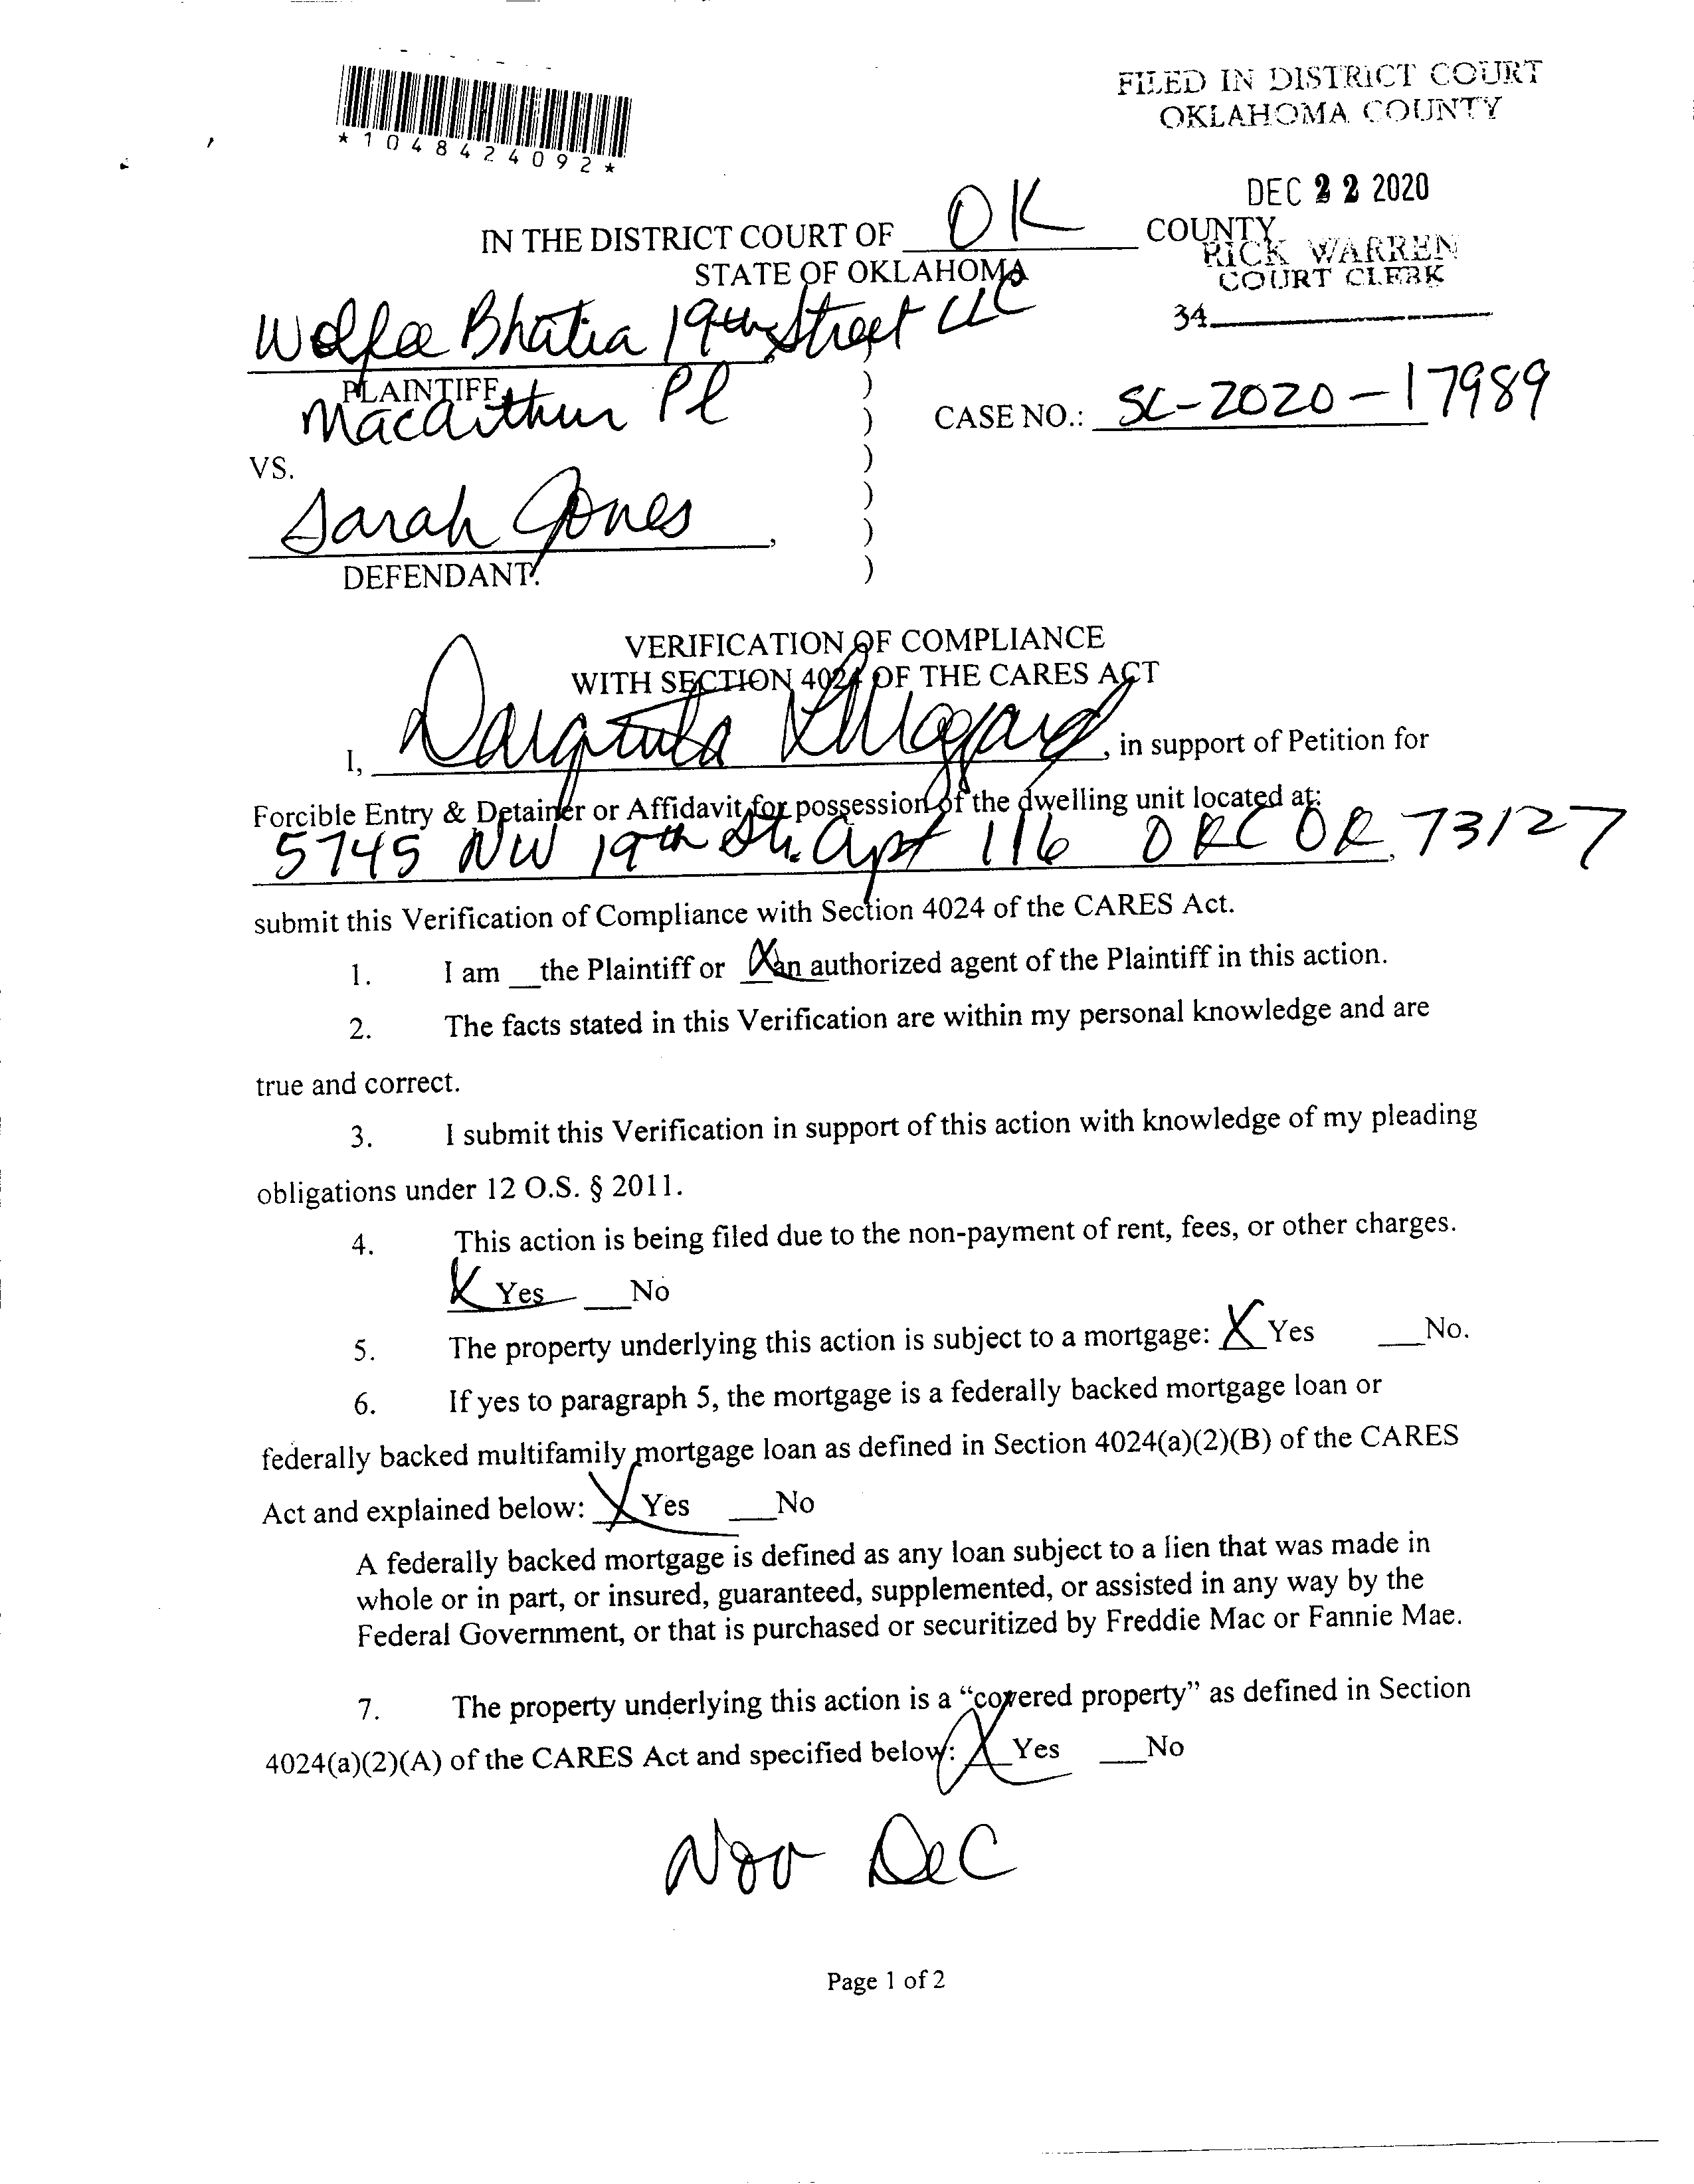 FILED IN DISTRICT COURT
OKLAHOMA COUNTY
*1048424092*
DEC 22 2020
IN THE DISTRICT COURT OF OK COUNTY
STATE OF OKLAHOMA
RICK WARREN
COURT CLERK
34
Wolfe Bhatia 19th Street LLC
PLAINTIFF,
Macarthur Pl
CASE NO.: SC-2020-17989
VS.
Sarah Jones,
DEFENDANT.
)
)
)
)
)
)
VERIFICATION OF COMPLIANCE
WITH SECTION 4024 OF THE CARES ACT
I, , in support of Petition for
Forcible Entry & Detainer or Affidavit for possession of the dwelling unit located at:
5745 NW 19th St. Apt 116 OKC OK, 73127
submit this Verification of Compliance with Section 4024 of the CARES Act.
1. I am __the Plaintiff or X an authorized agent of the Plaintiff in this action.
2. The facts stated in this Verification are within my personal knowledge and are
true and correct.
3. I submit this Verification in support of this action with knowledge of my pleading
obligations under 12 O.S. § 2011.
4. This action is being filed due to the non-payment of rent, fees, or other charges.
X Yes __No
5. The property underlying this action is subject to a mortgage: X Yes __No.
6. If yes to paragraph 5, the mortgage is a federally backed mortgage loan or
federally backed multifamily mortgage loan as defined in Section 4024(a)(2)(B) of the CARES
Act and explained below: X Yes __No
A federally backed mortgage is defined as any loan subject to a lien that was made in
whole or in part, or insured, guaranteed, supplemented, or assisted in any way by the
Federal Government, or that is purchased or securitized by Freddie Mac or Fannie Mae.
7. The property underlying this action is a “covered property” as defined in Section
4024(a)(2)(A) of the CARES Act and specified below: X Yes __No
Nov Dec
Page 1 of 2